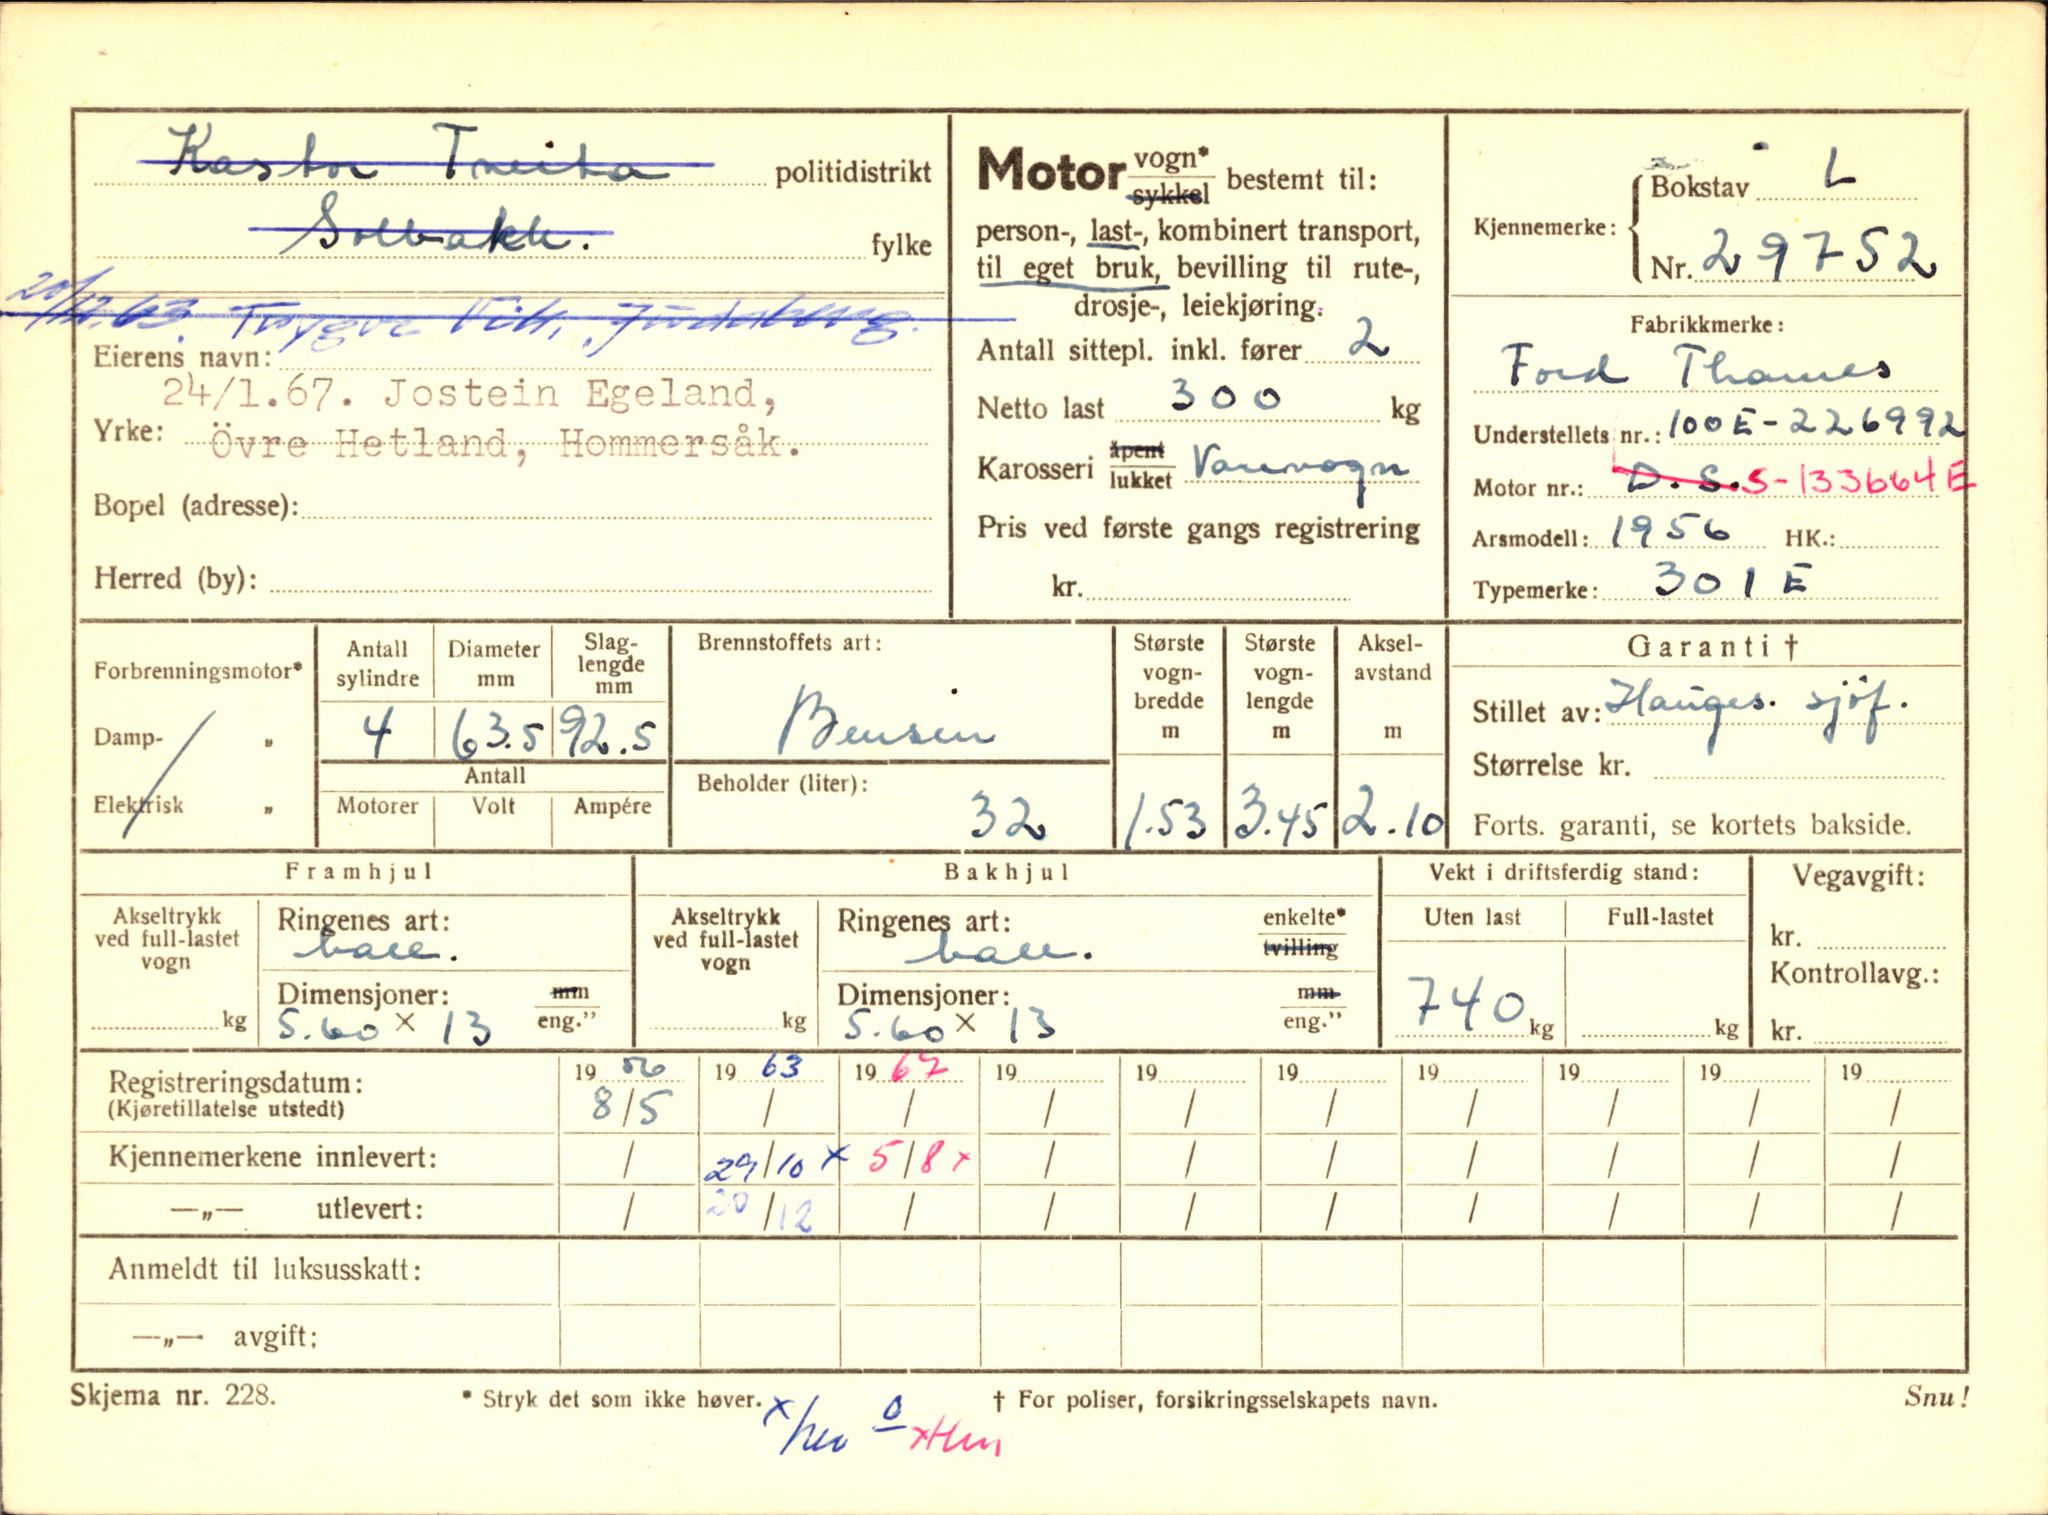 Kastor Treita politidistrikt
Solbakk. fylke
20/12.63 Trygve
Eierens navn:
24/1.67. Jostein Egeland,
Yrke: Övre Hetland, Hommersåk.
Bopel (adresse):
Herred (by):
Motor vogn* sykkel bestemt til:
person-, last-, kombinert transport,
til eget bruk, bevilling til rute-,
drosje-, leiekjøring.
Antall sittepl. inkl. fører 2
Netto last 300 kg
Karosseri åpent lukket Varevogn
Pris ved første gangs registrering
kr.
Kjennemerke: Bokstav L
Nr. 29752
Fabrikkmerke:
Ford Thames
Understellets nr.: 100E-226992
Motor nr.: D.S. S-133664E
Arsmodell: 1956 HK.:
Typemerke: 301E
Forbrenningsmotor*
Damp- „
Elektrisk „
Antall sylindre
Diameter mm
Slag-lengde mm
4 63.5 92.5
Antall
Motorer Volt Ampére
Brennstoffets art:
Bensin
Beholder (liter):
32
Største vogn-bredde m
1.53
Største vogn-lengde m
3.45
Aksel-avstand m
2.10
Garanti †
Stillet av: Hauges. sjöf.
Størrelse kr.
Forts. garanti, se kortets bakside.
Framhjul
Akseltrykk ved full-lastet vogn
kg
Ringenes art:
ball.
Dimensjoner: mm eng.”
5.60 × 13
Bakhjul
Akseltrykk ved full-lastet vogn
kg
Ringenes art: enkelte* tvilling
ball.
Dimensjoner: mm eng.”
5.60 × 13
Vekt i driftsferdig stand:
Uten last Full-lastet
740 kg kg
Vegavgift:
kr.
Kontrollavg.:
kr.
Registreringsdatum: 19 56 19 63 19 67 19 19 19 19 19 19 19
(Kjøretillatelse utstedt) 8/5 / / / / / / / / /
Kjennemerkene innlevert: / 29/10 x 5/8 x / / / / / / /
—„— utlevert: / 20/12 / / / / / / / /
Anmeldt til luksusskatt:
—„— avgift:
Skjema nr. 228. * Stryk det som ikke høver. † For poliser, forsikringsselskapets navn. Snu!